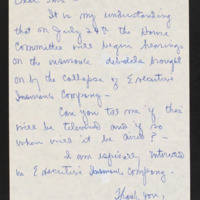 Dear Sirs -
It is my understanding
that on July 24th the House
Committee will begin hearings
on the insurance debacle brought
on by the collapse of Executive
Insurance Company.
Can you tell me if that
will be televised and if so
when will it be aired? -
I am especially interested
in Executive Insurance Company.
Thank you,